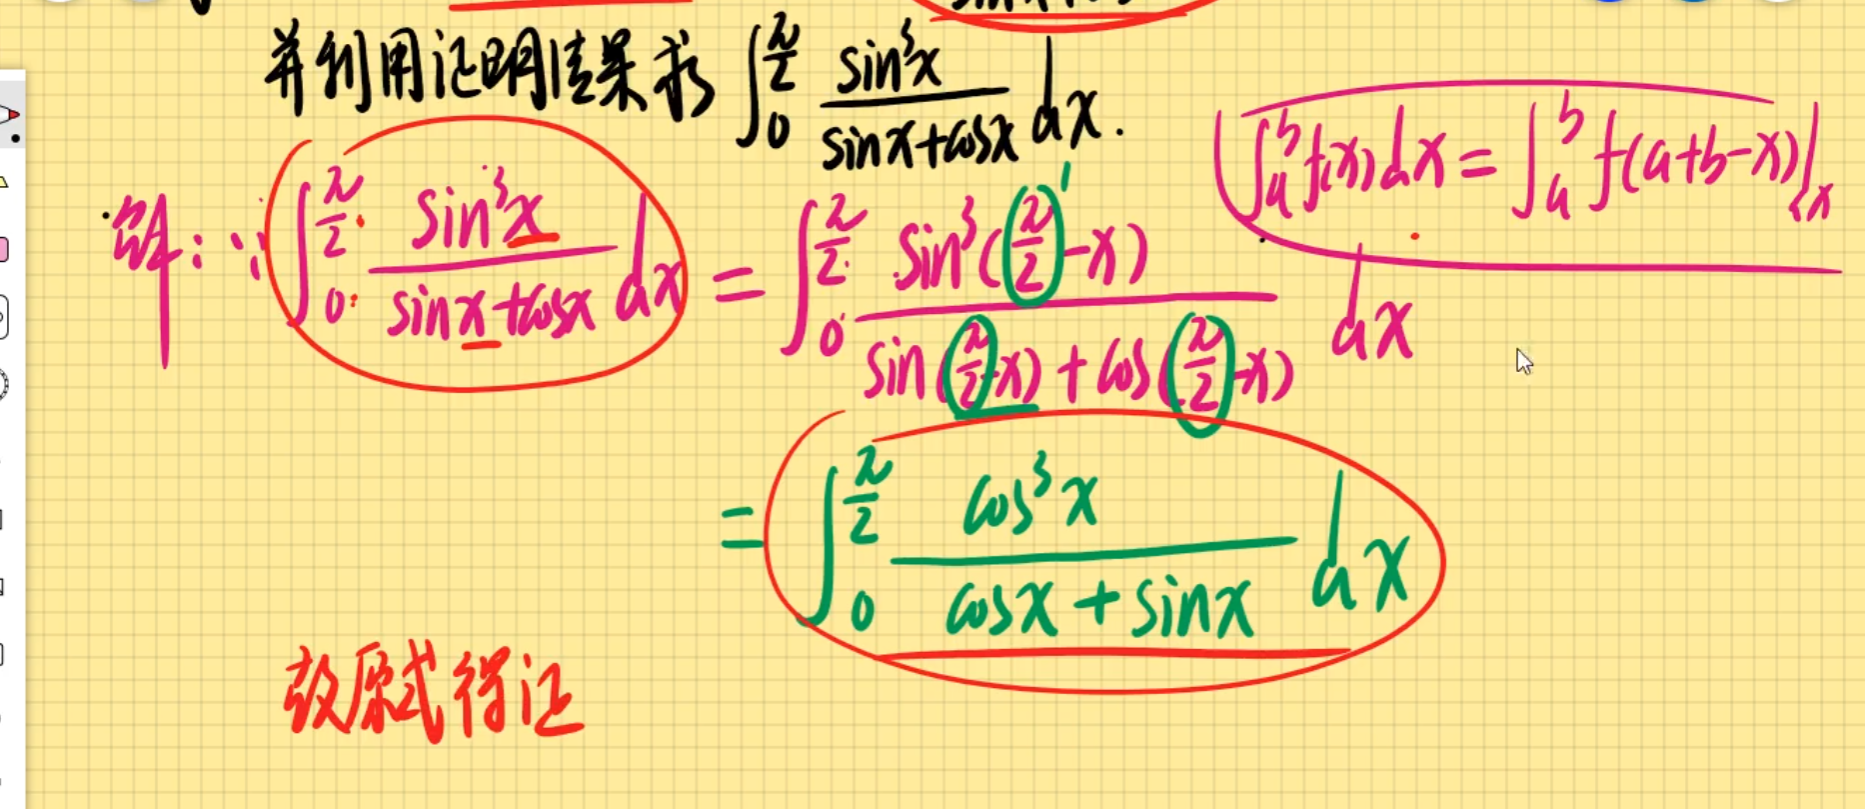 并利用证明结果求 ∫₀^(π/2) sin³x/(sinx+cosx) dx.
∫ₐᵇ f(x)dx = ∫ₐᵇ f(a+b-x)dx
解: ∵ ∫₀^(π/2) sin³x/(sinx+cosx) dx = ∫₀^(π/2) sin³(π/2-x)/(sin(π/2-x)+cos(π/2-x)) dx
= ∫₀^(π/2) cos³x/(cosx+sinx) dx
故原式得证